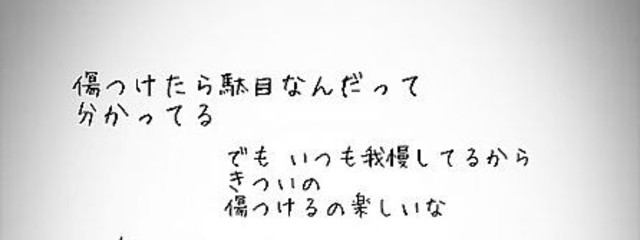 傷つけたら駄目なんだって
分かってる
でも いつも我慢してるから
きついの
傷つけるの楽しいな